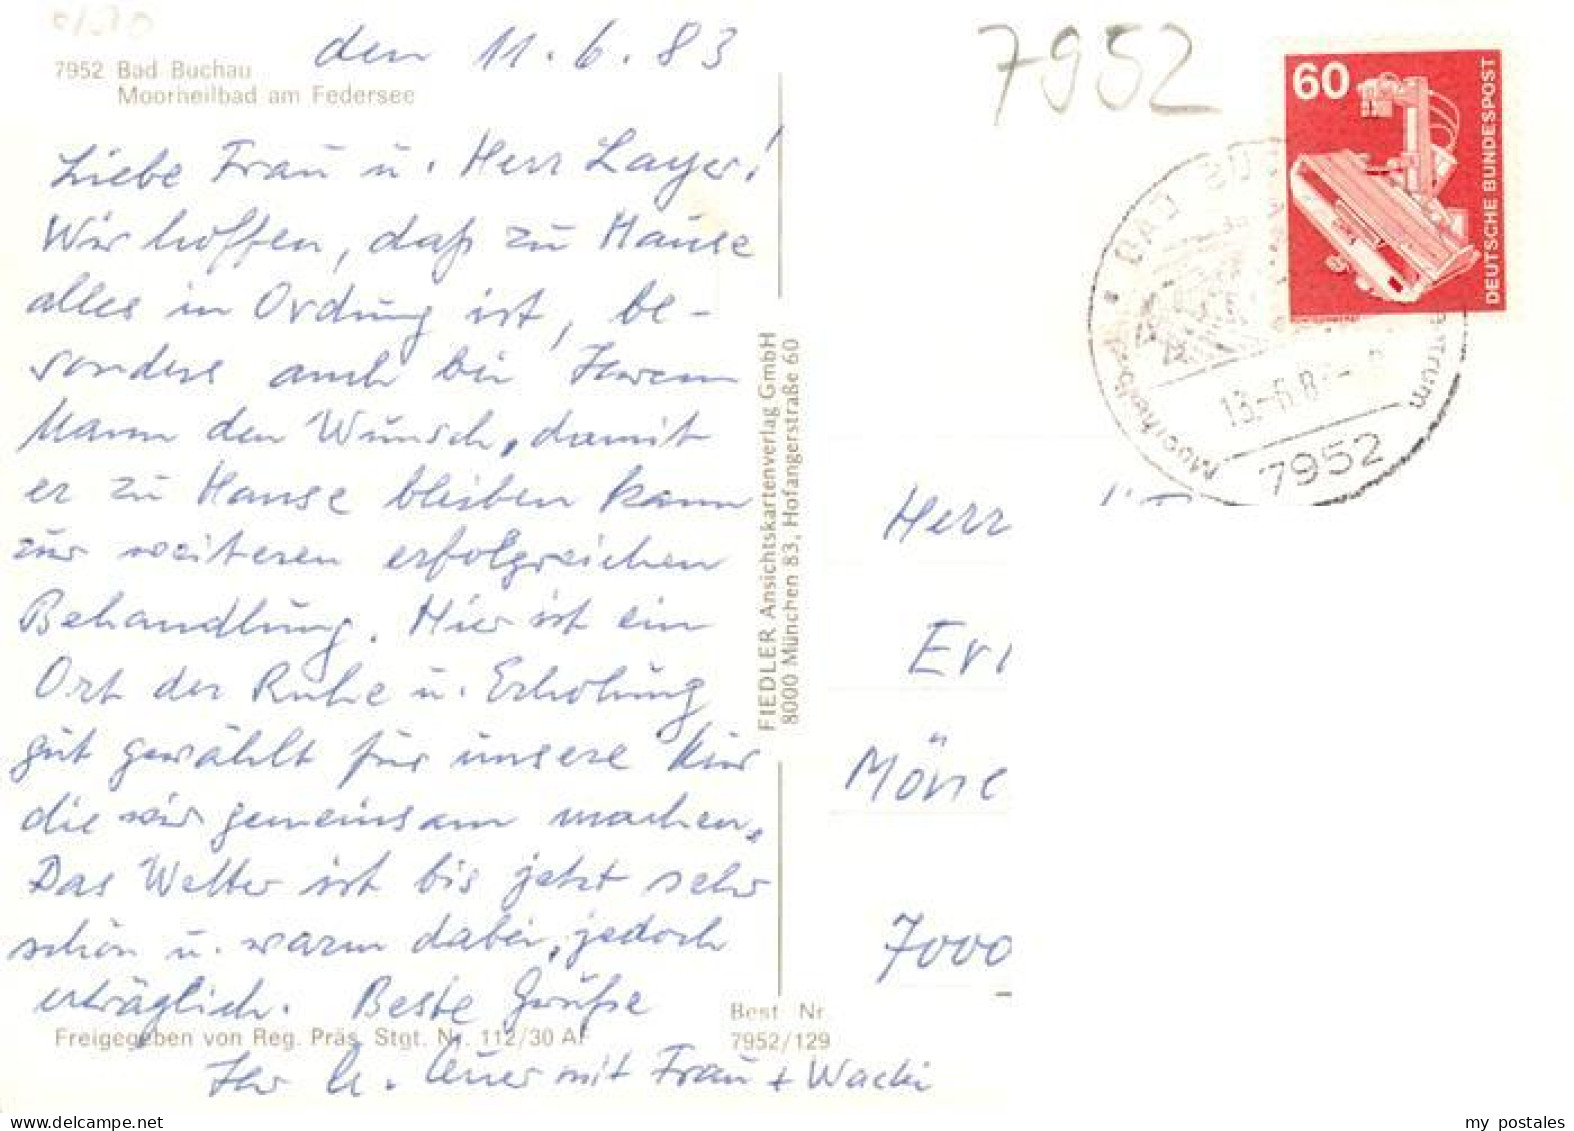 den 11.6.83
7952 Bad Buchau
Moorheilbad am Federsee
Liebe Frau u. Herr Layer!
Wir hoffen, daß zu Hause
alles in Ordung ist, be-
sonders auch bei Ihrem
Mann den Wunsch, damit
er zu Hause bleiben kann
zur weiteren erfolgreichen
Behandlung. Hier ist ein
Ort der Ruhe u. Erholung
gut gewählt für unsere Kur
die wir gemeinsam machen.
Das Wetter ist bis jetzt sehr
schön u. warm dabei, jedoch
erträglich. Beste Grüße
Freigegeben von Reg. Präs. Stgt. Nr. 112/30 AF
Ihr mit Frau + Wacki
Best. Nr.
7952/129
FIEDLER Ansichtskartenverlag GmbH
8000 München 83, Hofangerstraße 60
7952
60
DEUTSCHE BUNDESPOST
BAD BUC
Moorheilb
trum
13.-6.8
7952
Herr
Eri
Möne
7000
my postales